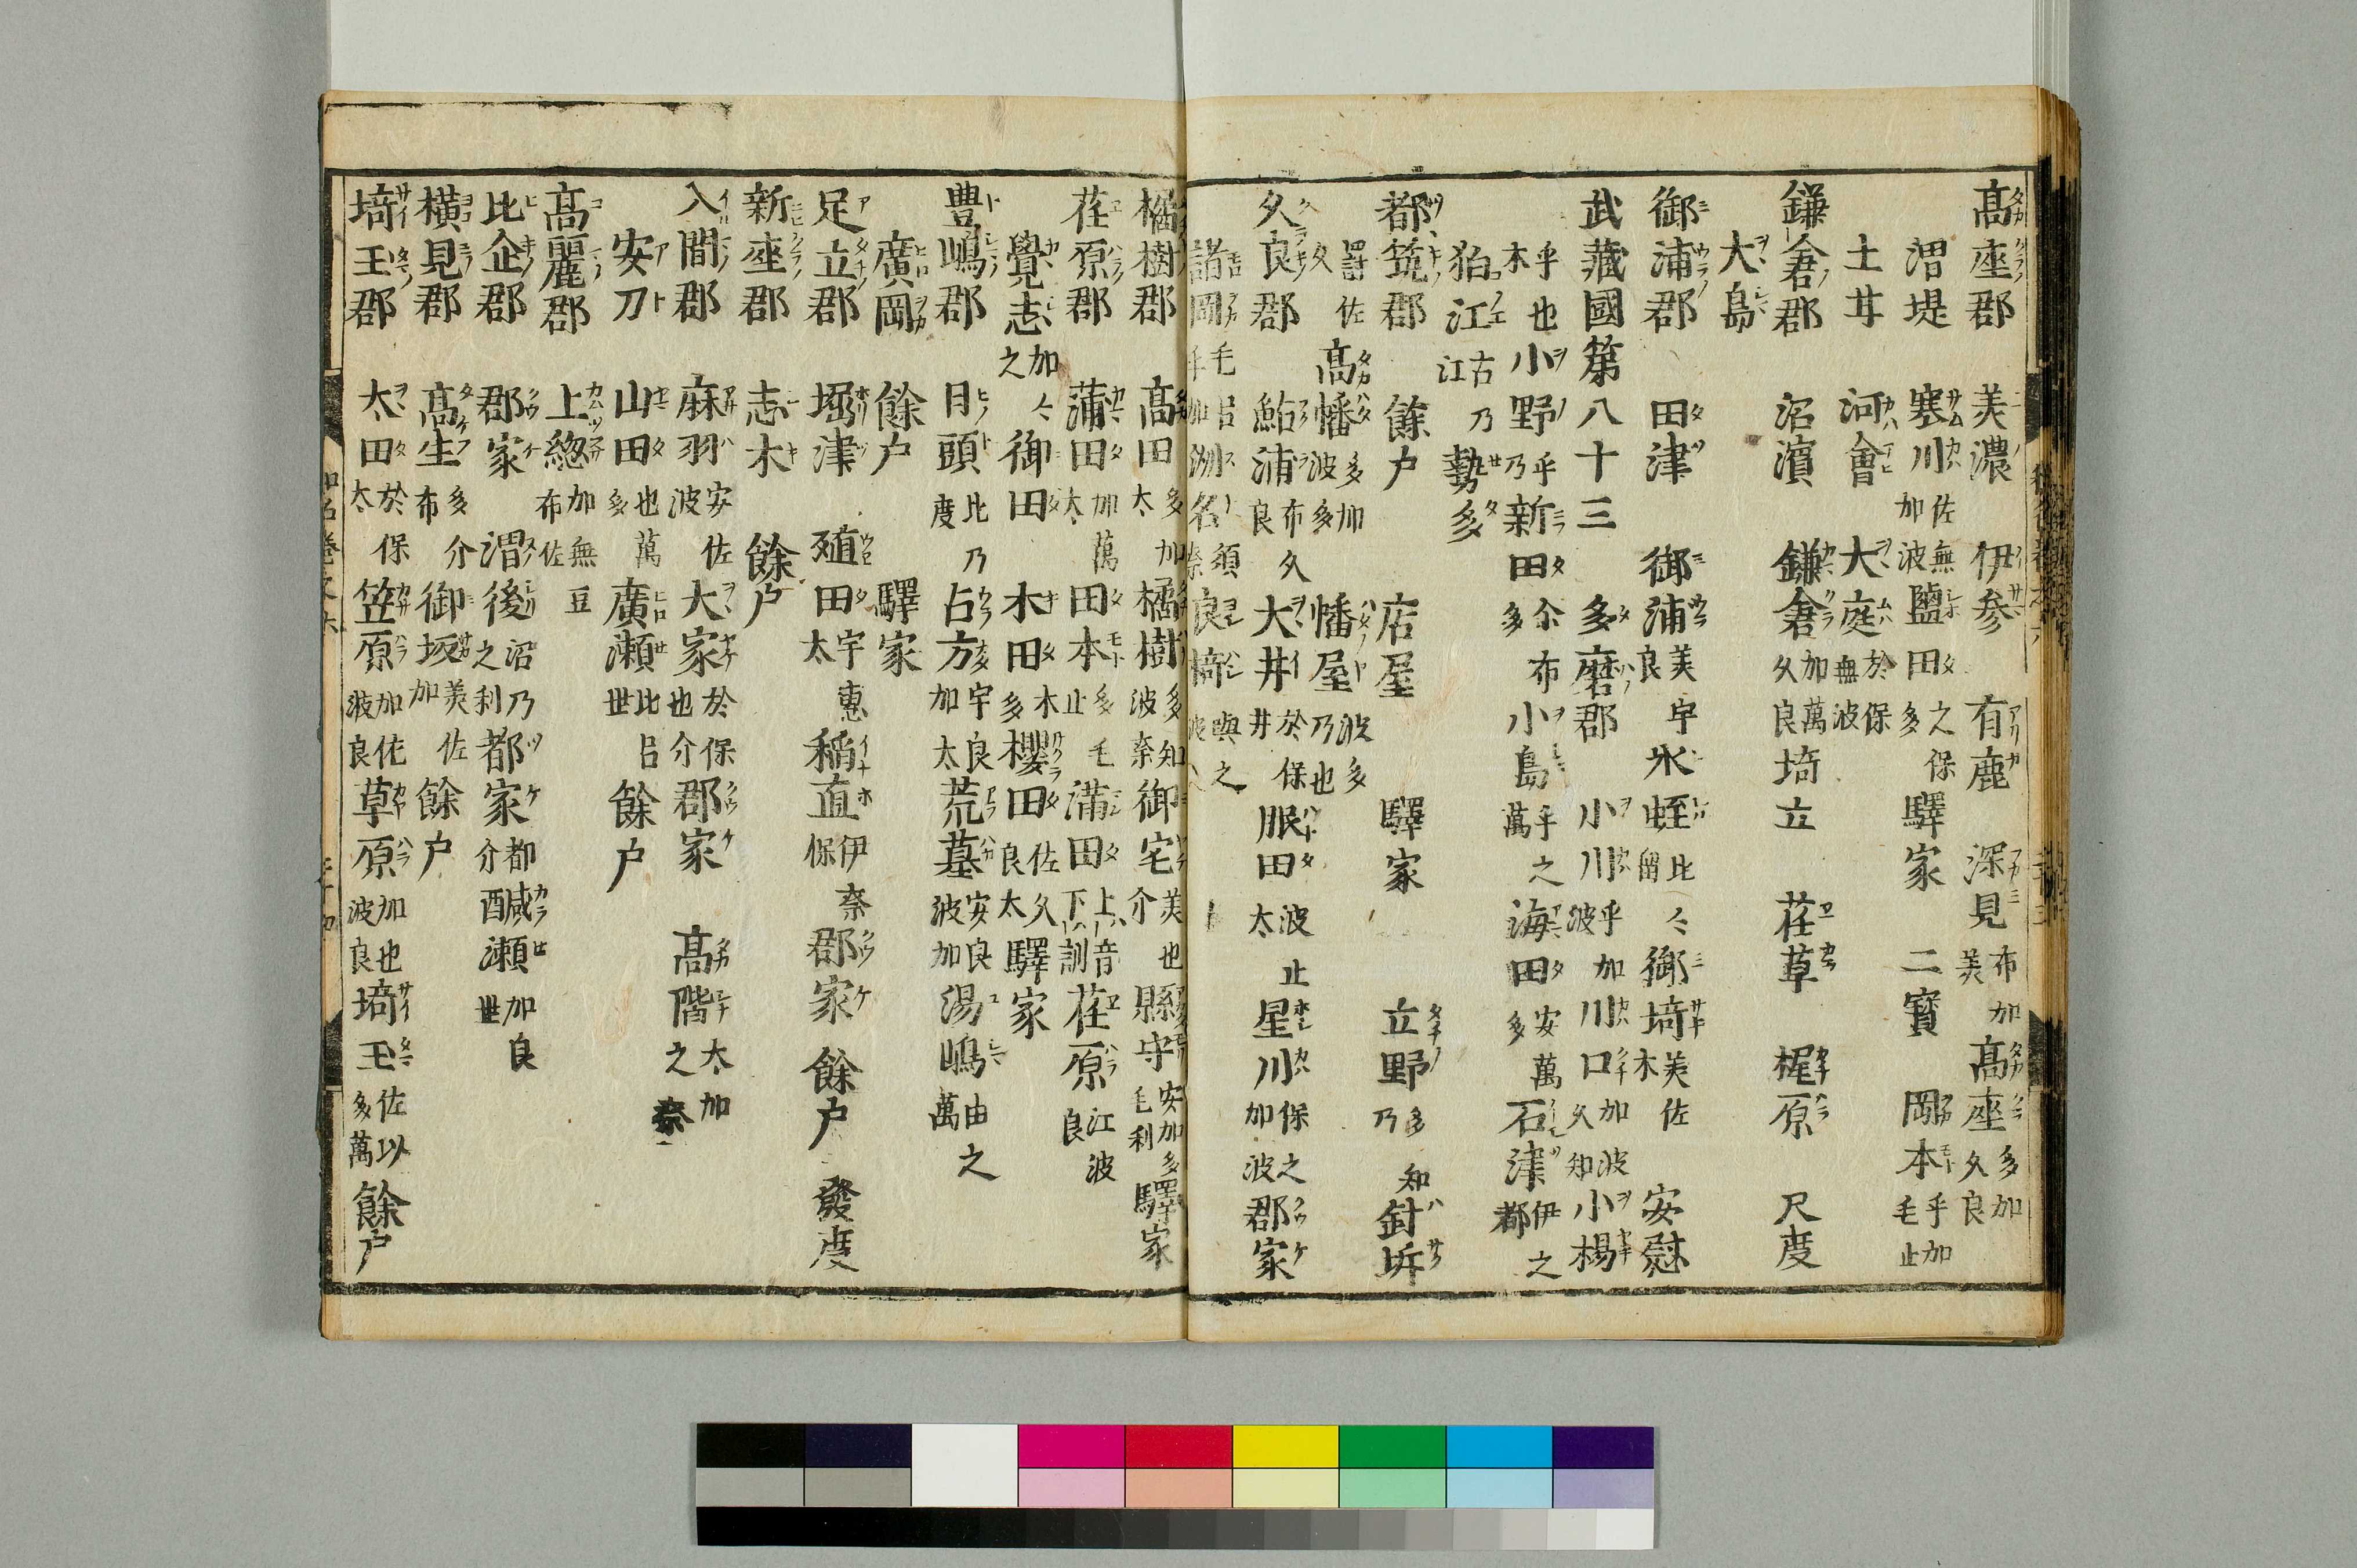 高座郡 美濃 伊参 有鹿 深見布加美 高座多加久良
渭堤 寒川佐無加波 鹽田之保多 驛家 二寶 岡本乎加毛止
土甘 河會 大庭於保無波
鎌倉郡 沼濱 鎌倉加萬久良 埼立 荏草 梶原 尺度
大島
御浦郡 田津 御浦美宇良 氷蛭比留 御埼美佐木 安慰
武藏國第八十三 多磨郡 小川乎加波 川口加波久知 小楊
乎也木 小野乎乃 新田尓布多 小島乎之萬 海田安萬多 石津伊之都
狛江古乃江 勢多
都筑郡 餘户 店屋 驛家 立野多知乃 針㘸
罸佐久 高幡多加波多 幡屋波多乃也
久良郡 鮎浦布久良 大井於保井 服田波止太 星川保之加波 郡家
諸岡毛呂乎加 洲名須奈 良椅
橘樹郡 高田多加太 橘樹多知波奈 御宅美也介 縣守安加多毛利 驛家
荏原郡 蒲田加萬太 田本多毛止 滿田上音下訓 荏原江波良
覺志加々之 御田 木田木多 櫻田佐久良太 驛家
豊嶋郡 日頭比乃度 占方宇良加太 荒墓安良波加 湯嶋由之萬
廣岡 餘户 驛家
足立郡 堀津 殖田宇惠太 稲直伊奈保 郡家 餘户 發度
新座郡 志木 餘户
入間郡 麻羽安佐波 大家於保也介 郡家 高階太加之奈
安刀 山田也萬多 廣瀬比呂世 餘户
高麗郡 上総加無布佐 豆
比企郡 郡家 渭後沼乃之利 都家都介 醎瀬加良世
横見郡 高生多介布 御坂美佐加 餘户
埼玉郡 太田於保太 笠原加佐波良 草原加也波良 埼玉佐以多萬 餘户